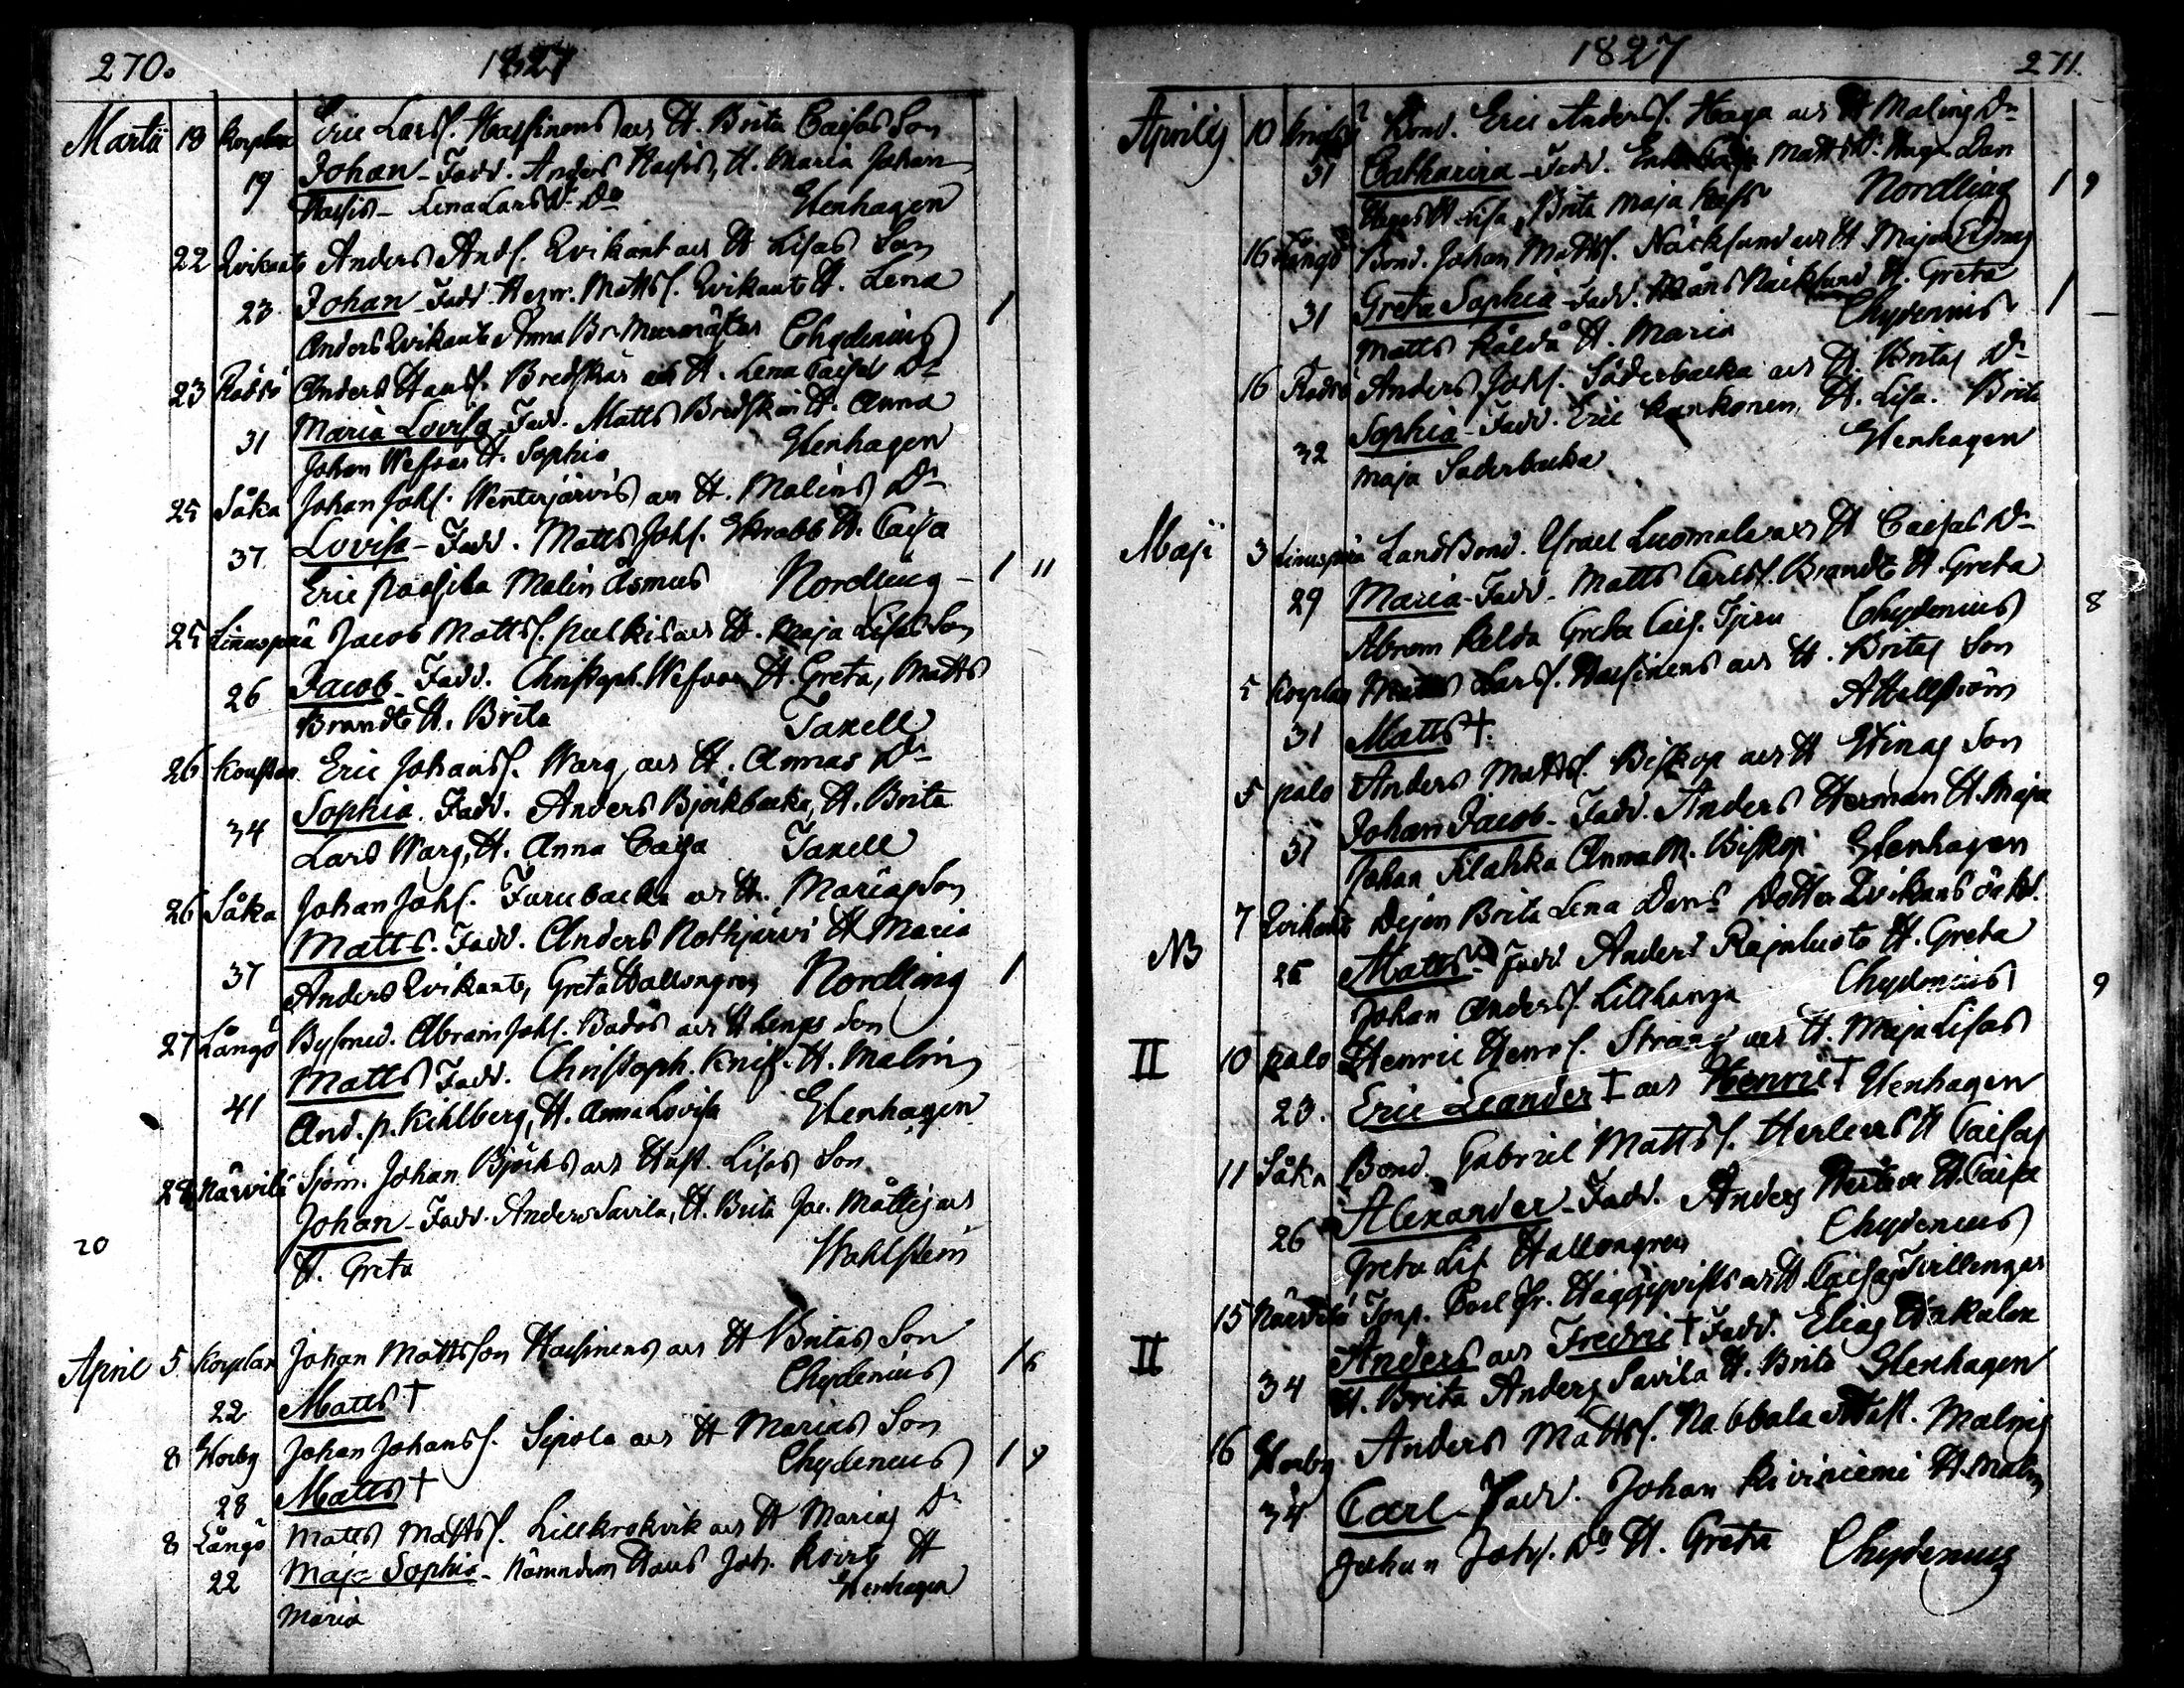 270. 1827
Martii 18 Korplax Eric Larss. Hassinens och H. Brita Caisas Son
19 Johan - Fadd. Anders Hassis, H. Maria Johan
Hassis - Lena Lars Dr Do Stenhagen
22 Qvikant Anders Ands. Qvikant och H Lisas Son
23 Johan Fadd. Henr. Mattss. Qvikants H. Lena 1
Anders Qvikants Anna Br. Chydenius
23 Rödsö Anders Hanss. Bredskär och H. Lena Caisas Dr
31 Maria Lovisa Fadd. Matts Bredskär H. Anna
Johan Wefvar H. Sophia Stenhagen
25 Såka Johan Johs. Wenterjärvis och H. Malins Dr
37 Lovisa - Fadd. Matts Johs. Skrabb H. Caisa
Eric Malin Åsmus Nordling - 1 11
25 Linnusperä Jacob Mattss. Pulkis och H. Maja Lisas Son
26 Jacob - Fadd. Christoph. Wefvar H. Greta, Matts
Brandts H. Brita Taxell
26 Eric Johanss. Warg, och H. Annas Dr
34 Sophia. Fadd. Anders Björkbacka, H. Brita
Lars Warg, H. Anna Caisa Taxell
26 Såka Johan Johs. Furubacka och H. Marias Son
Matts. Fadd. Anders Rothjärvi H Maria
37 Anders Qvikants, Greta Hallongren Nordling 1
27 Långö Bysmed. Abram Johs. Bados och H Lenas Son
Matts Fadd. Christoph. Knif. H. Malin
41 And. p. Kihlberg, H. Anna Lovisa Stenhagen
28 Närvilä Sjöm. Johan Björks och Hust. Lisas Son
Johan - Fadd. Anders Savila, H. Brita Jac. Måttis och
20 H. Greta Wahlstein
April 5 Korplax Johan Mattsson Hassinens och H Britas Son
22 Matts † Chydenius 1 6
8 Storby Johan Johanss. Sipola och H Marias Son
28 Matts † Chydenius 1 9
8 Långö Matts Mattss. Lillkrokvik och H Marias Dr
22 Maja Sophia - Nämndem Hans Joh. H
Maria Stenhagen
1827 271.
Aprilis 10 Bond. Eric Anderss. Haga och H Malins Dr
31 Catharina - Fadd. Matts Dr. Haga Dan
Hagas H Lisa, Brita Maja Nordling 1 9
16 Långö Bond. Johan Mattss. Näcksund och H Maja Stinas
31 Greta Sophia - Fadd. Måns Näcksund H. Greta 1
Matts Kåldå H. Maria Chydenius
16 Rödsö Anders Johs. Söderbacka och H. Britas Dr
32 Sophia - Fadd. Eric Kankonen, H. Lisa. Brita
Maja Söderbacka Stenhagen
Maji 3 Linnusperä LandBond. Israel Luomala och H Caisas Dr
29 Maria - Fadd. Matts Carlss. Brandts H. Greta
Abram Kelda Greta Cais. Chydenius 8
5 Korplax Matts Larss. Hassinens och H. Britas Son
31 Matts †. A Hellström
5 Palo Anders Mattss. Biskop och H Stinas Son
31 Johan Jacob - Fadd. Anders Herman H. Maja
Johan Anna M. Biskop Stenhagen
7 Qvikant Dejan Brita Lena Dans Dotter Qvikants oäkt.
NB 25 Matts - Fadd Anders Rajaluoto H. Greta
Johan Anderss. Lillhanga Chydenius 9
II 10 Palo Henric Henrs. Strang och H. Maja Lisas
23. Eric Leander † och Henric † Stenhagen
11 Såka Bond. Gabriel Mattss. Herlers H Caisas
26 Alexander - Fadd. Anders H. Caisa
Greta Lis. Hallongren Chydenius
15 Närvilä Torp. Carl Fr. Häggqvists och H Caisas Tvillingar
II 34 Anders och Fredric † Fadd. Elias Unkalax
H. Brita Anders Savila H. Brita Stenhagen
16 Storby Anders Mattss. Nabbala Hust. Malins
34 Carl - Fadd. Johan Kiviniemi H. Malin
Johan Johs. Do H. Greta Chydenius